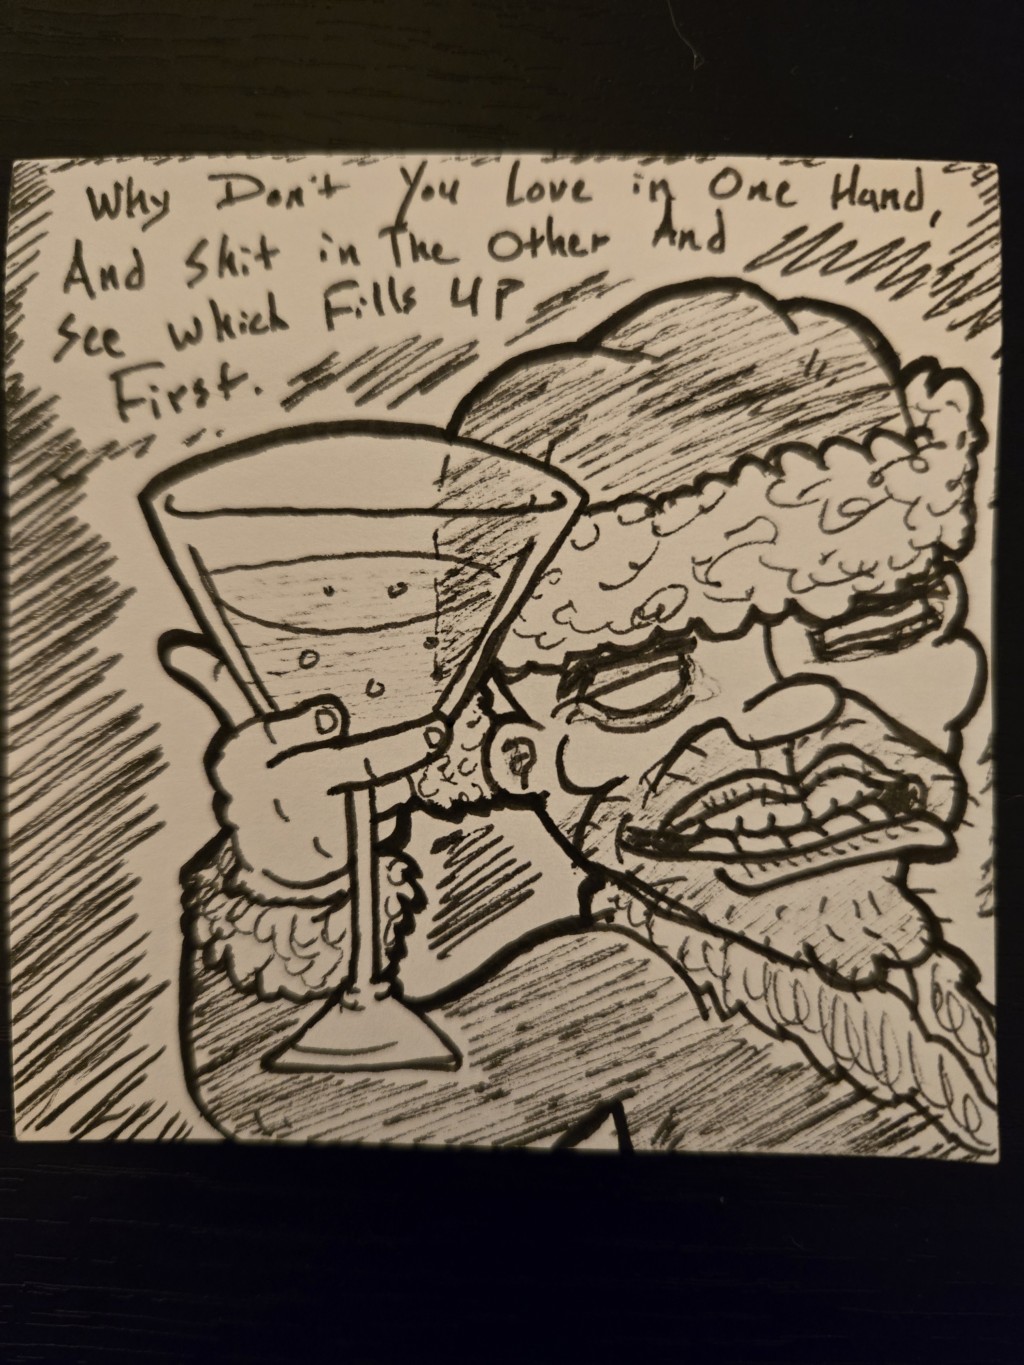 Why Don't You Love in One Hand,
And Shit in The Other And
See which Fills UP
First.